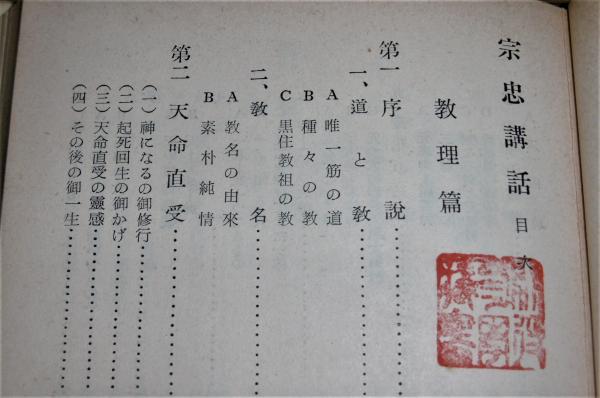 宗忠講話 目次
教理篇
第一 序 説
一、道 と 教
A 唯一筋の道
B 種々の教
C 黒住教祖の教
二、教 名
A 教名の由來
B 素朴純情
第二 天命直受
(一) 神になるの御修行
(二) 起死回生の御かげ
(三) 天命直受の靈感
(四) その後の御一生